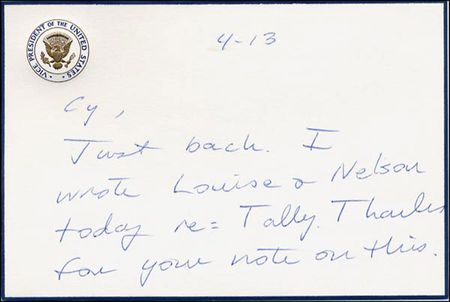 VICE PRESIDENT OF THE UNITED STATES
4-13
Cy,
Just back. I
wrote Louise & Nelson
today re: Tally. Thanks
for your note on this.